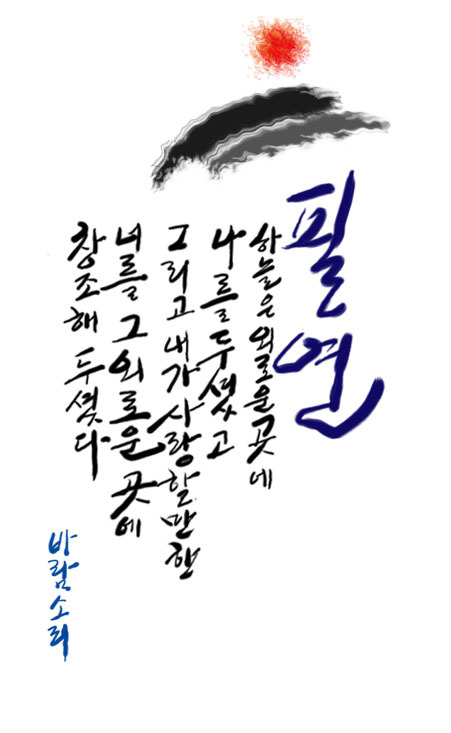 필연
하늘은 외로운 곳에
나를 두셨고
그리고 내가 사랑할 만한
너를 그 외로운 곳에
창조해 두셨다
바람소리